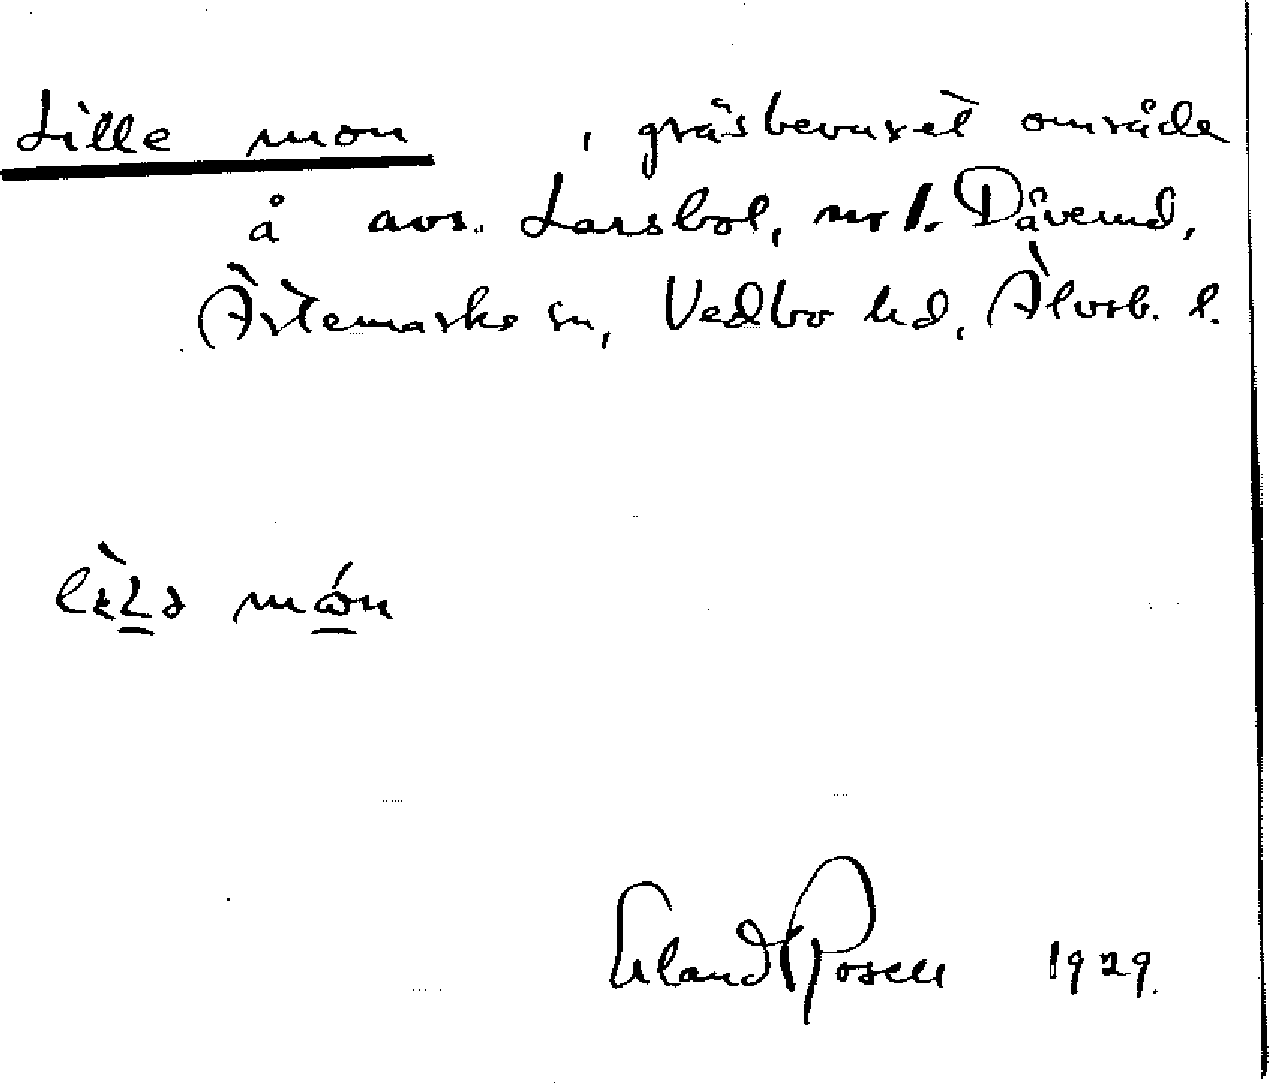 Lille mon , gräsbevuxet område
å avs. Larsbol, nr 1. Dåverud,
Ärtemarks sn, Vedbo hd, Älvsb. l.
món
Erland Rosell 1929.